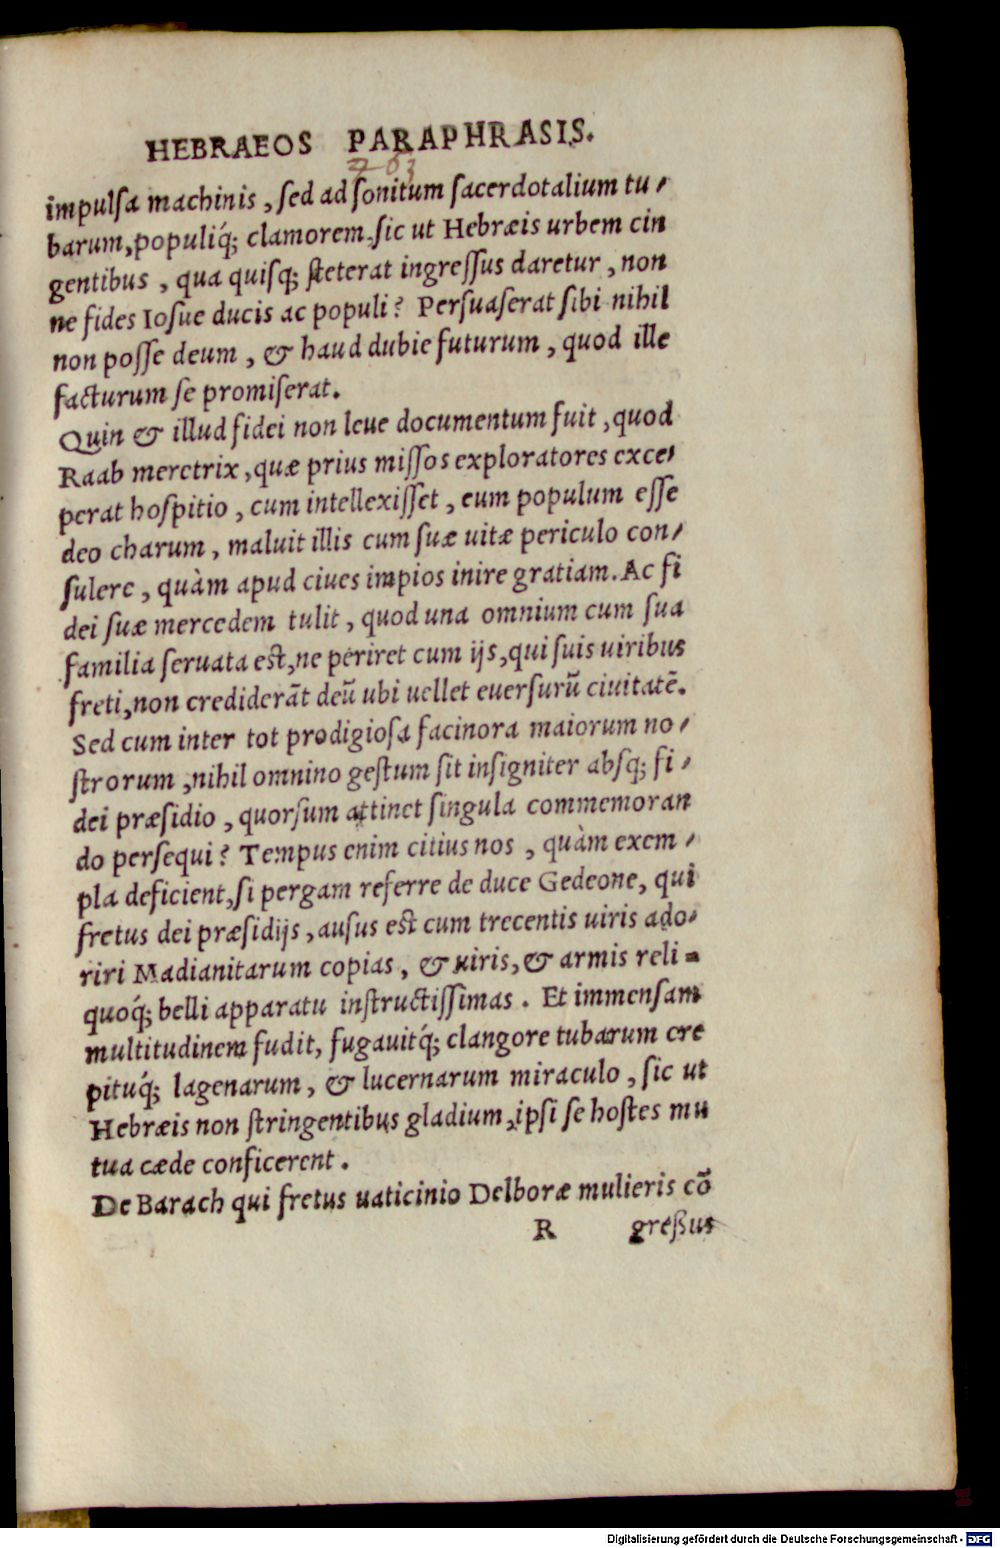 HEBRAEOS PARAPHRASIS.
463
impulſa machinis, ſed ad ſonitum ſacerdotalium tu-
barum, populiq́; clamorem, ſic ut Hebræis urbem cin
gentibus, qua quiſq; ſteterat ingreſſus daretur, non
ne fides Ioſue ducis ac populi? Perſuaſerat ſibi nihil
non poſſe deum, & haud dubie futurum, quod ille
facturum ſe promiſerat.
Quin & illud fidei non leue documentum fuit, quod
Raab meretrix, quæ prius miſſos exploratores exce-
perat hoſpitio, cum intellexiſſet, eum populum eſſe
deo charum, maluit illis cum ſuæ uitæ periculo con-
ſulere, quàm apud ciues impios inire gratiam. Ac fi
dei ſuæ mercedem tulit, quod una omnium cum ſua
familia ſeruata eſt, ne periret cum ijs, qui ſuis uiribus
freti, non crediderãt deũ ubi uellet euerſurũ ciuitatẽ.
Sed cum inter tot prodigioſa facinora maiorum no-
ſtrorum, nihil omnino geſtum ſit inſigniter abſq; fi-
dei præſidio, quorſum attinet ſingula commemoran
do perſequi? Tempus enim citius nos, quàm exem-
pla deficient, ſi pergam referre de duce Gedeone, qui
fretus dei præſidijs, auſus eſt cum trecentis uiris ado-
riri Madianitarum copias, & uiris, & armis reli-
quoq́; belli apparatu inſtructiſſimas. Et immenſam
multitudinem fudit, fugauitq́; clangore tubarum cre
pituq́; lagenarum, & lucernarum miraculo, ſic ut
Hebræis non ſtringentibus gladium, ipſi ſe hoſtes mu
tua cæde conficerent.
De Barach qui fretus uaticinio Delboræ mulieris cõ
R greßus
Digitalisierung gefördert durch die Deutsche Forschungsgemeinschaft - DFG